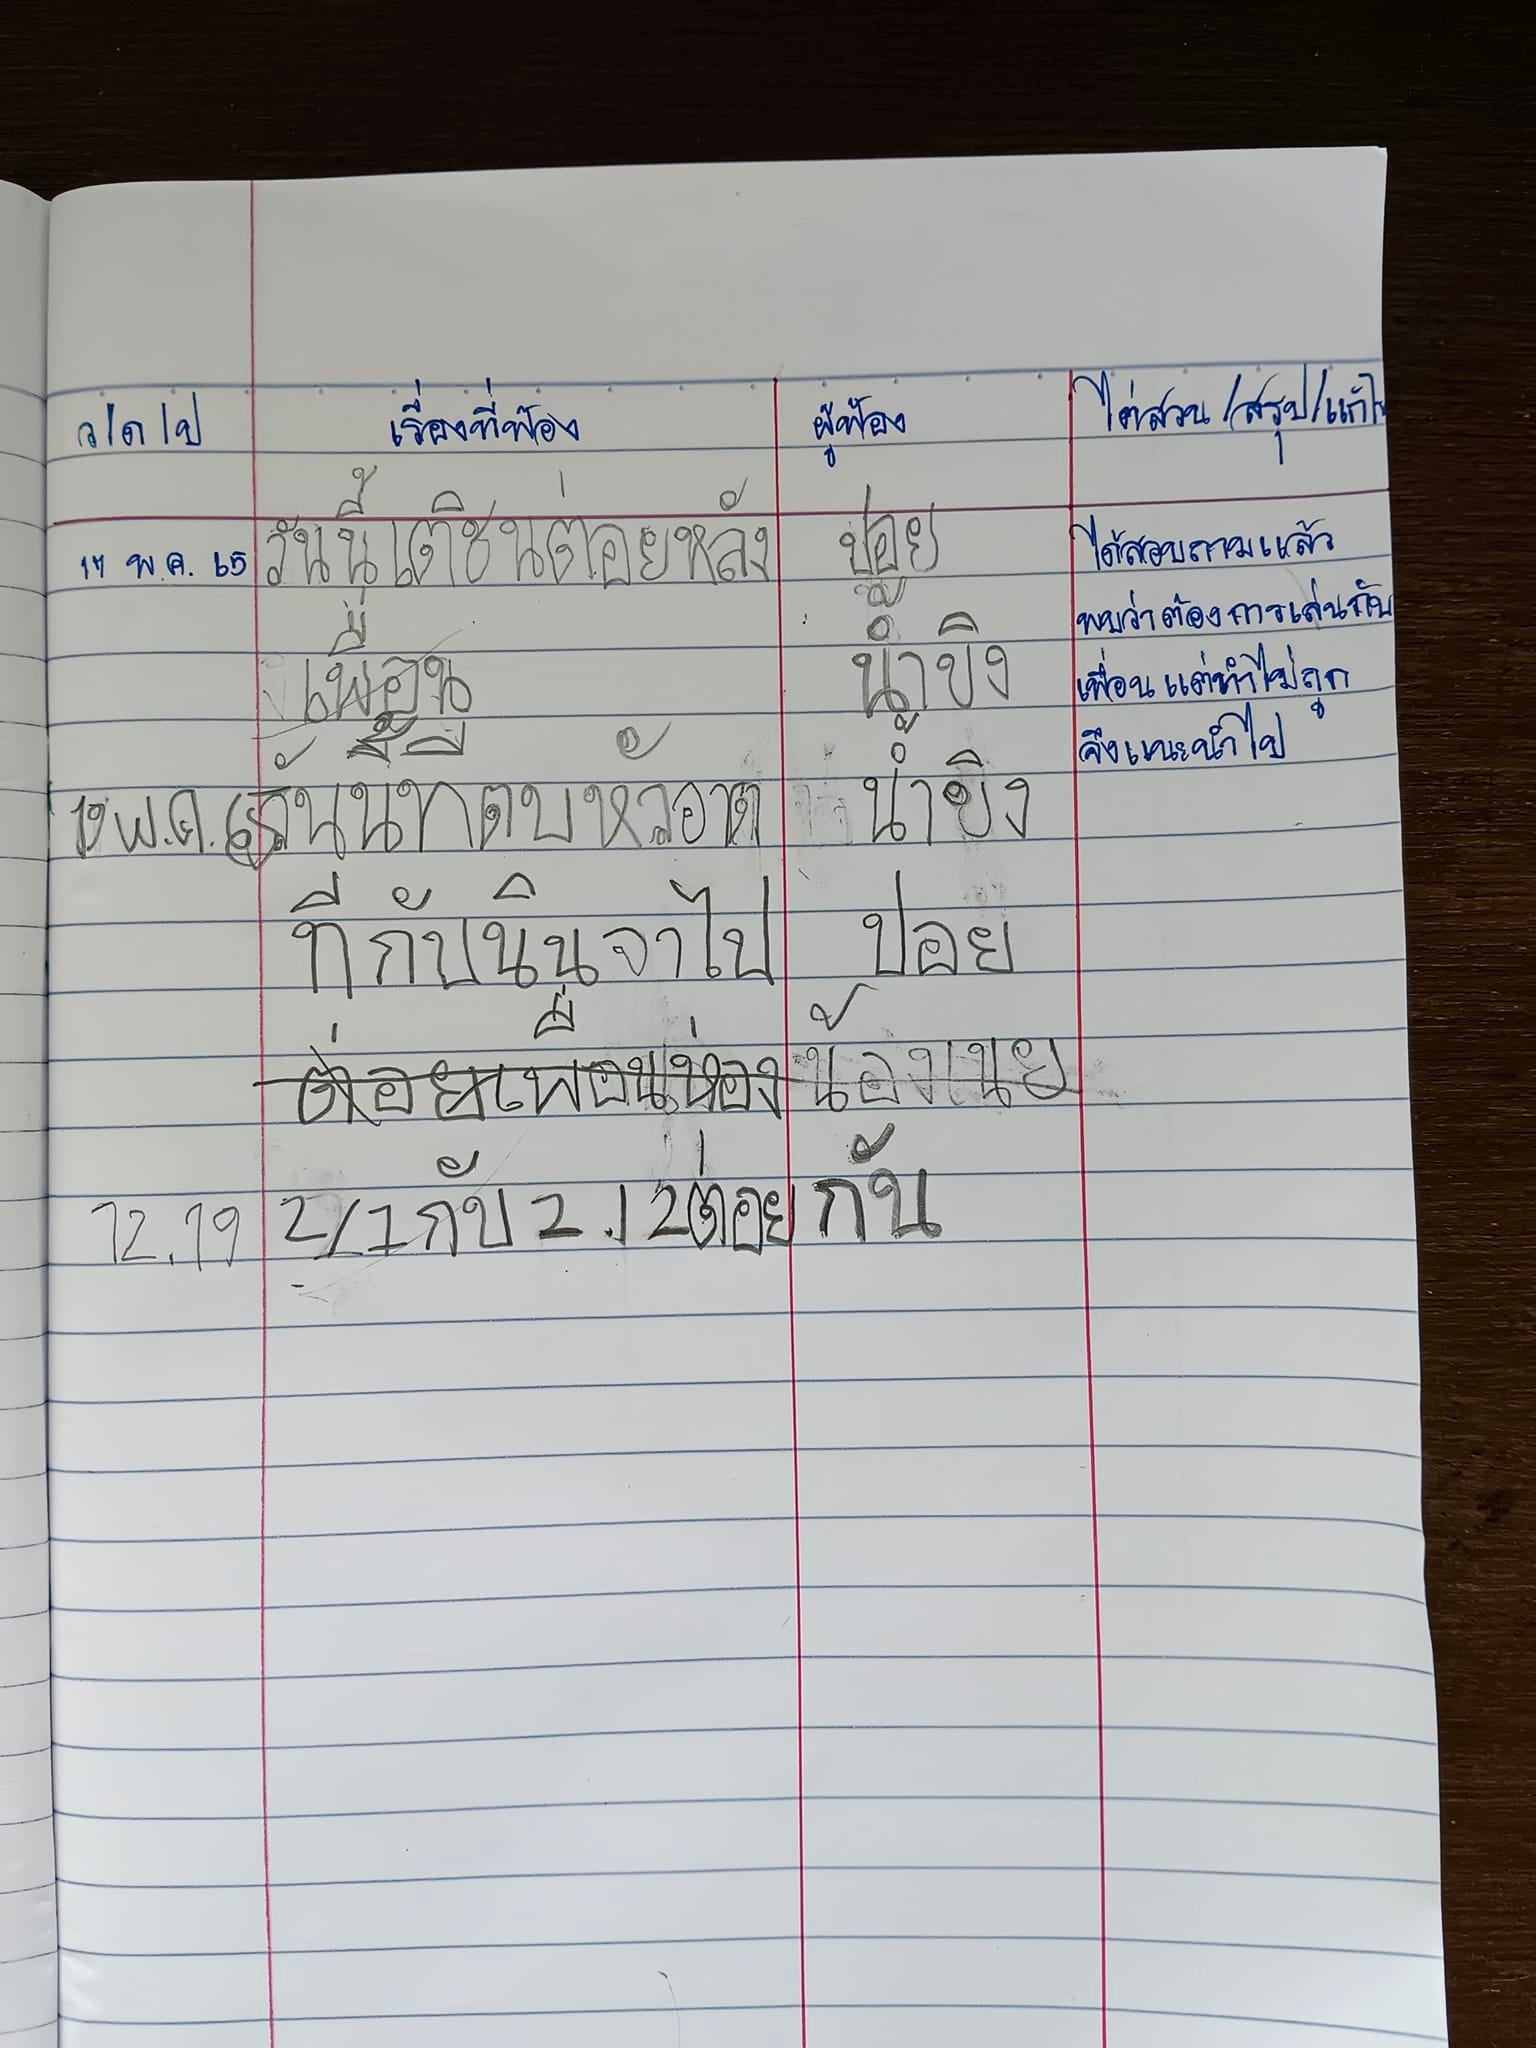 ว/ด/ป เรื่องที่ฟ้อง ผู้ฟ้อง ไต่สวน/สรุป/แก้ไข
17 พ.ค. 65 วันนี้เตชินต่อยหลัง ปอย ได้สอบถามแล้ว
พบว่าต้องการเล่นกับ
เพื่อน น้ำขิง เพื่อน แต่ทำไม่ถูก
จึงแนะนำไป
19 พ.ค. 65 วันนี้ ตบหัว น้ำขิง
ที่กับ จาไป ปอย
ต่อยเพื่อนห่อง น้องเนย
12.19 2/1กับ 2.12ต่อย กัน